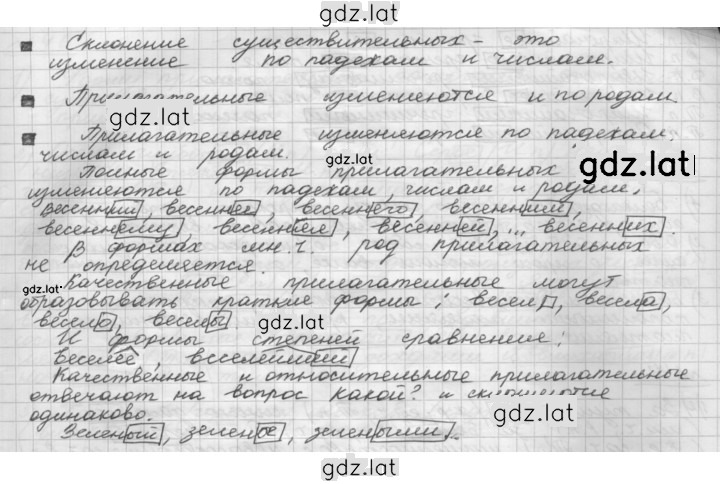 gdz.lat
Склонение существительных - это
изменение по падежам и числам.
Прилагательные изменяются и по родам
gdz.lat
Прилагательные изменяются по падежам,
числам и родам.
gdz.lat
gdz.lat
Полные формы прилагательных
изменяются по падежам, числам и родам.
Весенний, весеннее, весеннего, весенним,
весеннему, весеннем, весенней, ... весенних.
В формах мн. ч. род прилагательных
не определяется.
gdz.lat
Качественные прилагательные могут
образовывать краткие формы: весел, весела,
весело, веселы
gdz.lat
И формы степеней сравнения:
Веселее,
Качественные и относительные прилагательные
отвечают на вопрос какой? и склоняются
одинаково.
gdz.lat
Зеленый, зеленое, зелеными...
gdz.lat